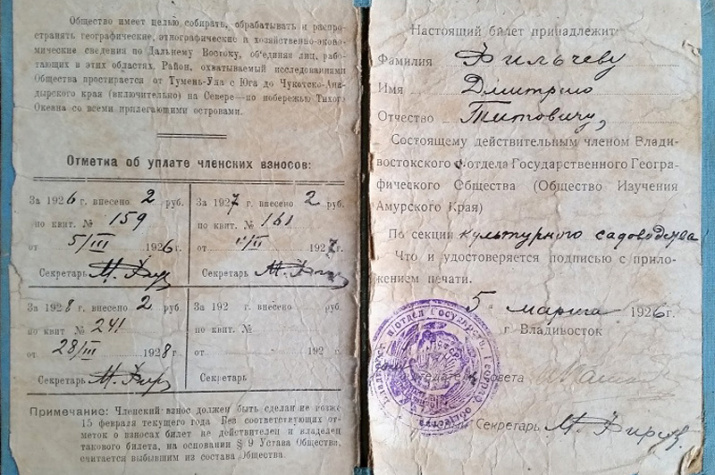 Общество имеет целью собирать, обрабатывать и распро-
странять географические, этнографические и хозяйственно-эконо-
мические сведения по Дальнему Востоку, об'единяя лиц, рабо-
тающих в этих областях. Район, охватываемый исследованиями
Общества простирается от Тумень-Ула с Юга до Чукотско-Ана-
дырского края (включительно) на Севере—по побережью Тихого
Океана со всеми прилегающими островами.
Отметка об уплате членских взносов:
За 1926 г. внесено 2 руб.
по квит. № 159
от 5/III 1926 г.
Секретарь
За 1927 г. внесено 2 руб.
по квит. № 161
от /II 1927 г.
Секретарь
За 1928 г. внесено 2 руб
по квит № 241
от 28/III 1928 г.
Секретарь
За 192 г. внесено руб.
по квит. №
от 192 г.
Секретарь
Примечание: Членский взнос должен быть сделан не позже
15 февраля текущего года. Без соответствующих от-
меток о взносах билет не действителен и владелец
такового билета, на основании § 9 Устава Общества,
считается выбывшим из состава Общества.
Настоящий билет принадлежит
Фамилия Фильчеву
Имя Дмитрию
Отчество Титовичу,
Состоящему действительным членом Влади-
востокского Отдела Государственного Геогра-
фического Общества (Общество Изучения
Амурского Края)
По секции культурного садоводства
Что и удостоверяется подписью с прило-
жением печати.
5 марта 1926 г.
г Владивосток
Председатель Совета
Секретарь